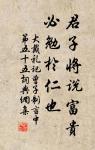 君子将说富贵
必勉於仁也
大戴礼记曾子制言中
第五十五词典网集